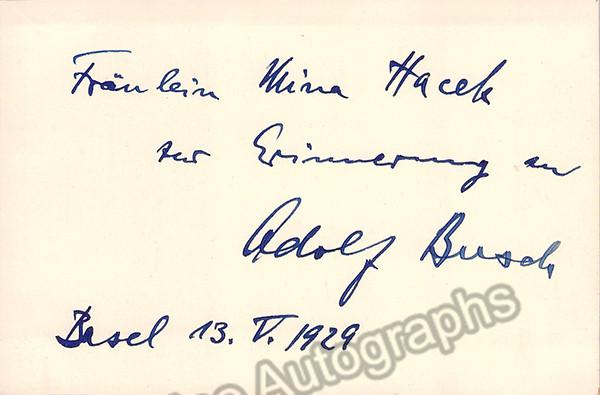 Fräulein Mina Hacek
zur Erinnerung an
Adolf Busch
Basel 13. V. 1929
Autographs